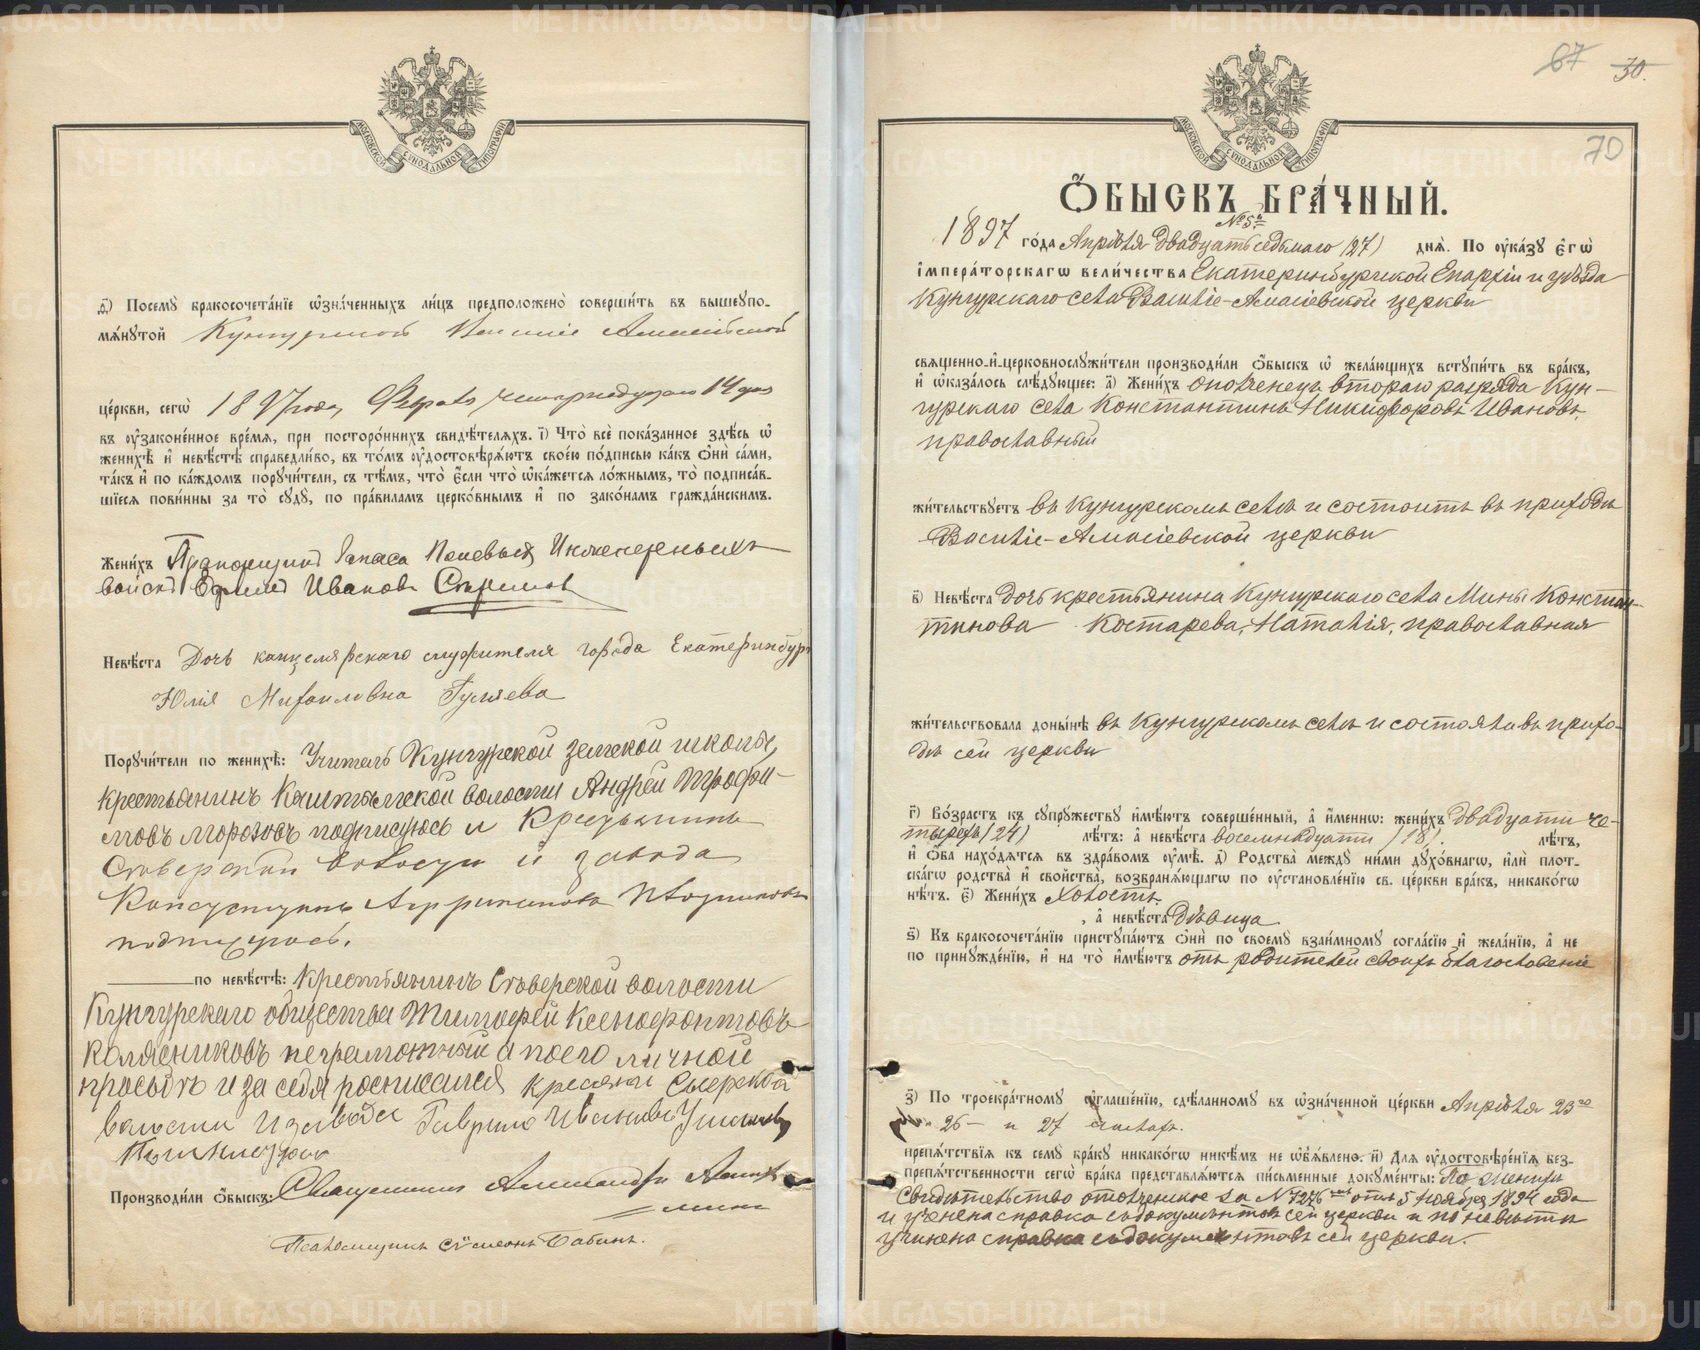 METRIKI.GASO-URAL.RU
МОСКОВСКОЙ СѴНОДАЛЬНОЙ ТИПОГРАФІИ
д҃і) Посемꙋ бракосочета́нїе ѡ҆зна́ченныхъ ли́цъ предположено̀ соверши́ть въ вышеꙋпо-
мѧ́нꙋтой Кунгурской Василіе Амасійской
це́ркви, сегѡ̀ 1897 года, четырнадцатаго 14 дня
въ оу҆законе́нное вре́мѧ, при посторо́ннихъ свидѣ́телѧхъ. і҃) Что̀ всѐ пока́занное здѣ́сь ѡ҆
женихѣ̀ и҆ невѣ́стѣ справедли́во, въ то́мъ оу҆достовѣрѧ́ютъ свое́ю по́дписью ка́къ ѻ҆нѝ са́ми,
та́къ и҆ по ка́ждомъ порꙋчи́тели, съ тѣ́мъ, что̀ є҆́сли что̀ ѡ҆ка́жетсѧ ло́жнымъ, то̀ подписа́в-
шїесѧ пови́нны за то̀ сꙋдꙋ̀, по пра́виламъ церко́внымъ и҆ по зако́намъ гражда́нскимъ.
Жени́хъ Прапорщикъ Запаса Полевыхъ Инженерныхъ
войскъ Ефимъ Ивановъ
Невѣ́ста Дочь канцелярскаго служителя города Екатеринбур
Юлія Михаиловна Гуляева
Порꙋчи́тели по женихѣ̀: Учитель Кунгурской земской школы,
крестьянинъ Каштымской волости Андрей Трофи-
мовъ Морозовъ подписуюсь и Крестьянинъ
Сысерской волости и завода
подписуюсь.
по невѣ́стѣ: Крестьянинъ Сысерской волости
Кунгурскаго общества Тимофей Ксенофонтовъ
Колясниковъ неграмотный а по его личной
просьбѣ и за себя росписался крестьян Сысерской
волости и завода Гаврило Ивановъ Ушаковъ
Производи́ли ѻ҆́быскъ: Священникъ Александръ
Псаломщикъ Сѵмеонъ Бабинъ.
67 30.
70
МОСКОВСКОЙ СѴНОДАЛЬНОЙ ТИПОГРАФІИ
Ѻ҆́БЫСКЪ БРА́ЧНЫЙ.
№ 5й
1897 го́да Апрѣля двадцать седьмаго (27) днѧ̀. По оу҆ка́зꙋ є҆гѡ̀
і҆мпера́торскагѡ вели́чества Екатеринбургской Епархіи и уѣзда
Кунгурскаго села Василіе-Амасіевской церкви
свѧщенно-и҆-церковнослꙋжи́тели производи́ли ѻ҆́быскъ ѡ҆ жела́ющихъ встꙋпи́ть въ бра́къ,
и҆ ѡ҆каза́лось слѣ́дꙋющее: а҃) Жени́хъ ополченецъ втораго разряда Кун-
гурскаго села Константинъ Никифоровъ Ивановъ,
православный
жи́тельствꙋетъ въ Кунгурскомъ селѣ и состоитъ въ приходѣ
Василіе-Амасіевской церкви
в҃) Невѣ́ста дочь крестьянина Кунгурскаго села Мины Констан-
тинова Костарева, Наталія, православная
жи́тельствовала доны́нѣ въ Кунгурскомъ селѣ и состояла въ прихо-
дѣ сей церкви
г҃) Во́зрастъ къ сꙋпрꙋ́жествꙋ и҆мѣ́ютъ соверше́нный, а҆ и҆́меннѡ: жени́хъ двадцати че-
тырехъ (24) лѣ́тъ: а҆ невѣ́ста восемнадцати (18) лѣ́тъ,
и҆ ѻ҆́ба нахо́дѧтсѧ въ здра́вомъ оу҆мѣ̀. д҃) Родства̀ междꙋ̀ ни́ми дꙋхо́внагѡ, и҆лѝ плот-
ска́гѡ родства̀ и҆ сво́йства, возбранѧ́ющагѡ по оу҆становле́нїю св. це́ркви бра́къ, никако́гѡ
нѣ́тъ. є҃) Жени́хъ Холостъ,
, а҆ невѣ́ста Дѣвица
ѕ҃) Къ бракосочета́нїю пристꙋпа́ютъ ѻ҆нѝ по своемꙋ̀ взаи́мномꙋ согла́сїю и҆ жела́нїю, а҆ не
по принꙋжде́нїю, и҆ на то̀ и҆мѣ́ютъ отъ родителей своихъ благословеніе
з҃) По троекра́тномꙋ ѡ҆глаше́нїю, сдѣ́ланномꙋ въ ѡ҆зна́ченной це́ркви Апрѣля 23го
26 — и 27 числахъ.
препѧ́тствїѧ къ семꙋ̀ бра́кꙋ никако́гѡ никѣ́мъ не ѡ҆б̾ѧ́влено. и҃) Длѧ оу҆достовѣре́нїѧ без-
препѧ́тственности сегѡ̀ бра́ка представлѧ́ютсѧ пи́сьменные докꙋме́нты: По женихѣ
Свидѣтельство ополченское за № 7276 отъ 5 ноября 1894 года
и учинена справка съ документовъ сей церкви и по невѣстѣ
учинена справка съ документовъ сей церкви.